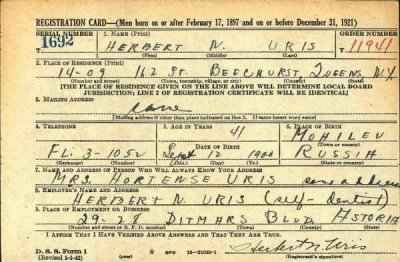 REGISTRATION CARD—(Men born on or after February 17, 1897 and on or before December 31, 1921)
SERIAL NUMBER 1. NAME (Print) ORDER NUMBER
1692 HERBERT N. URIS 11941
(First) (Middle) (Last)
2. PLACE OF RESIDENCE (Print)
14-09 162 St BEECHURST, QUEENS N.Y
(Number and street) (Town, township, village, or city) (County) (State)
[THE PLACE OF RESIDENCE GIVEN ON THE LINE ABOVE WILL DETERMINE LOCAL BOARD
JURISDICTION; LINE 2 OF REGISTRATION CERTIFICATE WILL BE IDENTICAL]
3. MAILING ADDRESS
same
[Mailing address if other than place indicated on line 2. If same insert word same]
4. TELEPHONE 5. AGE IN YEARS 6. PLACE OF BIRTH
41 MOHILEV
DATE OF BIRTH (Town or county)
FL. 3-1052 Sept 12 1900 RUSSIA
(Exchange) (Number) (Mo.) (Day) (Yr.) (State or country)
7. NAME AND ADDRESS OF PERSON WHO WILL ALWAYS KNOW YOUR ADDRESS
MRS. HORTENSE URIS same address
8. EMPLOYER'S NAME AND ADDRESS
HERBERT N. URIS (self-dentist)
9. PLACE OF EMPLOYMENT OR BUSINESS
29-28 DITMARS BLVD ASTORIA
(Number and street or R. F. D. number) (Town) (County) (State)
I AFFIRM THAT I HAVE VERIFIED ABOVE ANSWERS AND THAT THEY ARE TRUE.
D. S. S. Form 1 GPO 16-21630-1 Herbert N. Uris
(Revised 1-1-42) (over) (Registrant's signature)